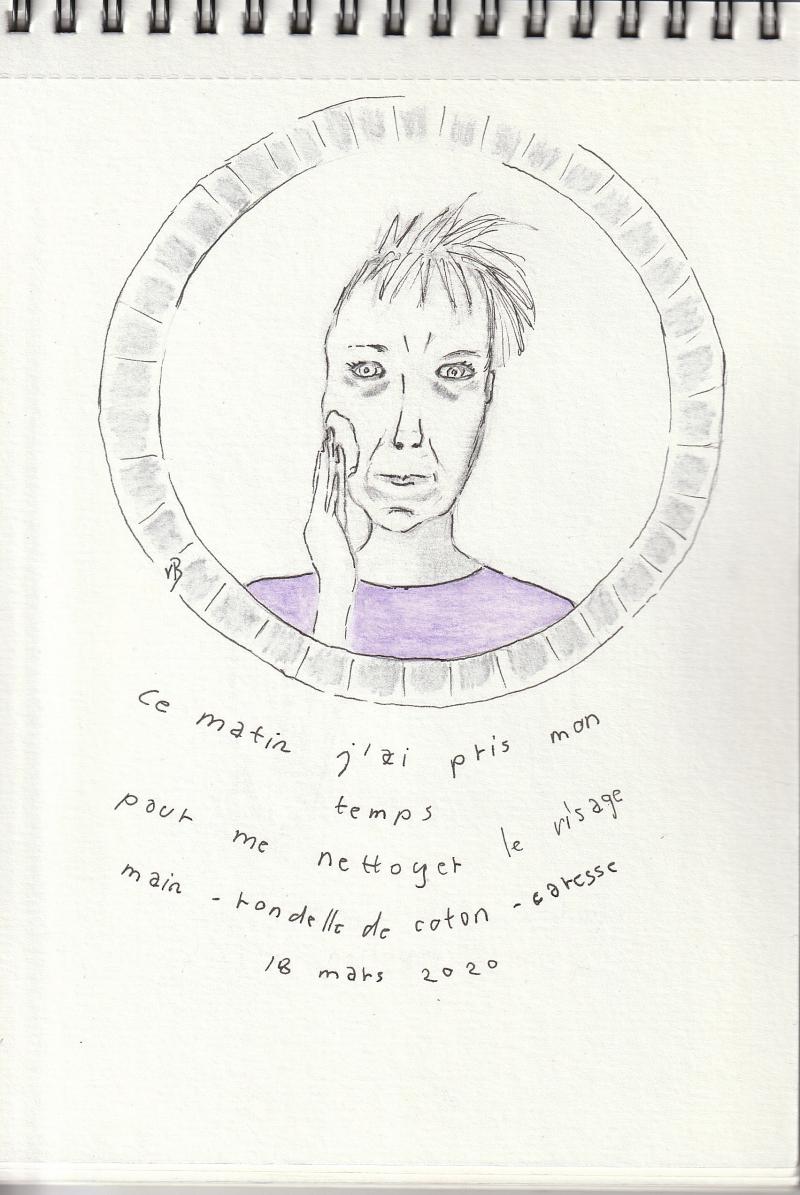 vB
Ce matin j'ai pris mon
temps
pour me nettoyer le visage
main - rondelle de coton - caresse
18 mars 2020